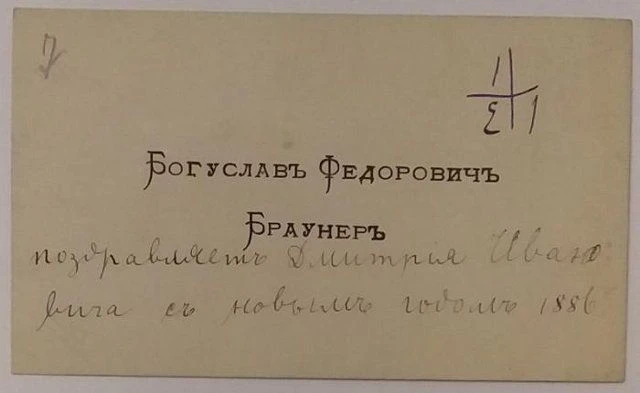 7
1
Σ 1
Богуславъ Федоровичъ
Браунеръ
поздравляетъ Дмитрія Ивано
вича съ новымъ годомъ 1886